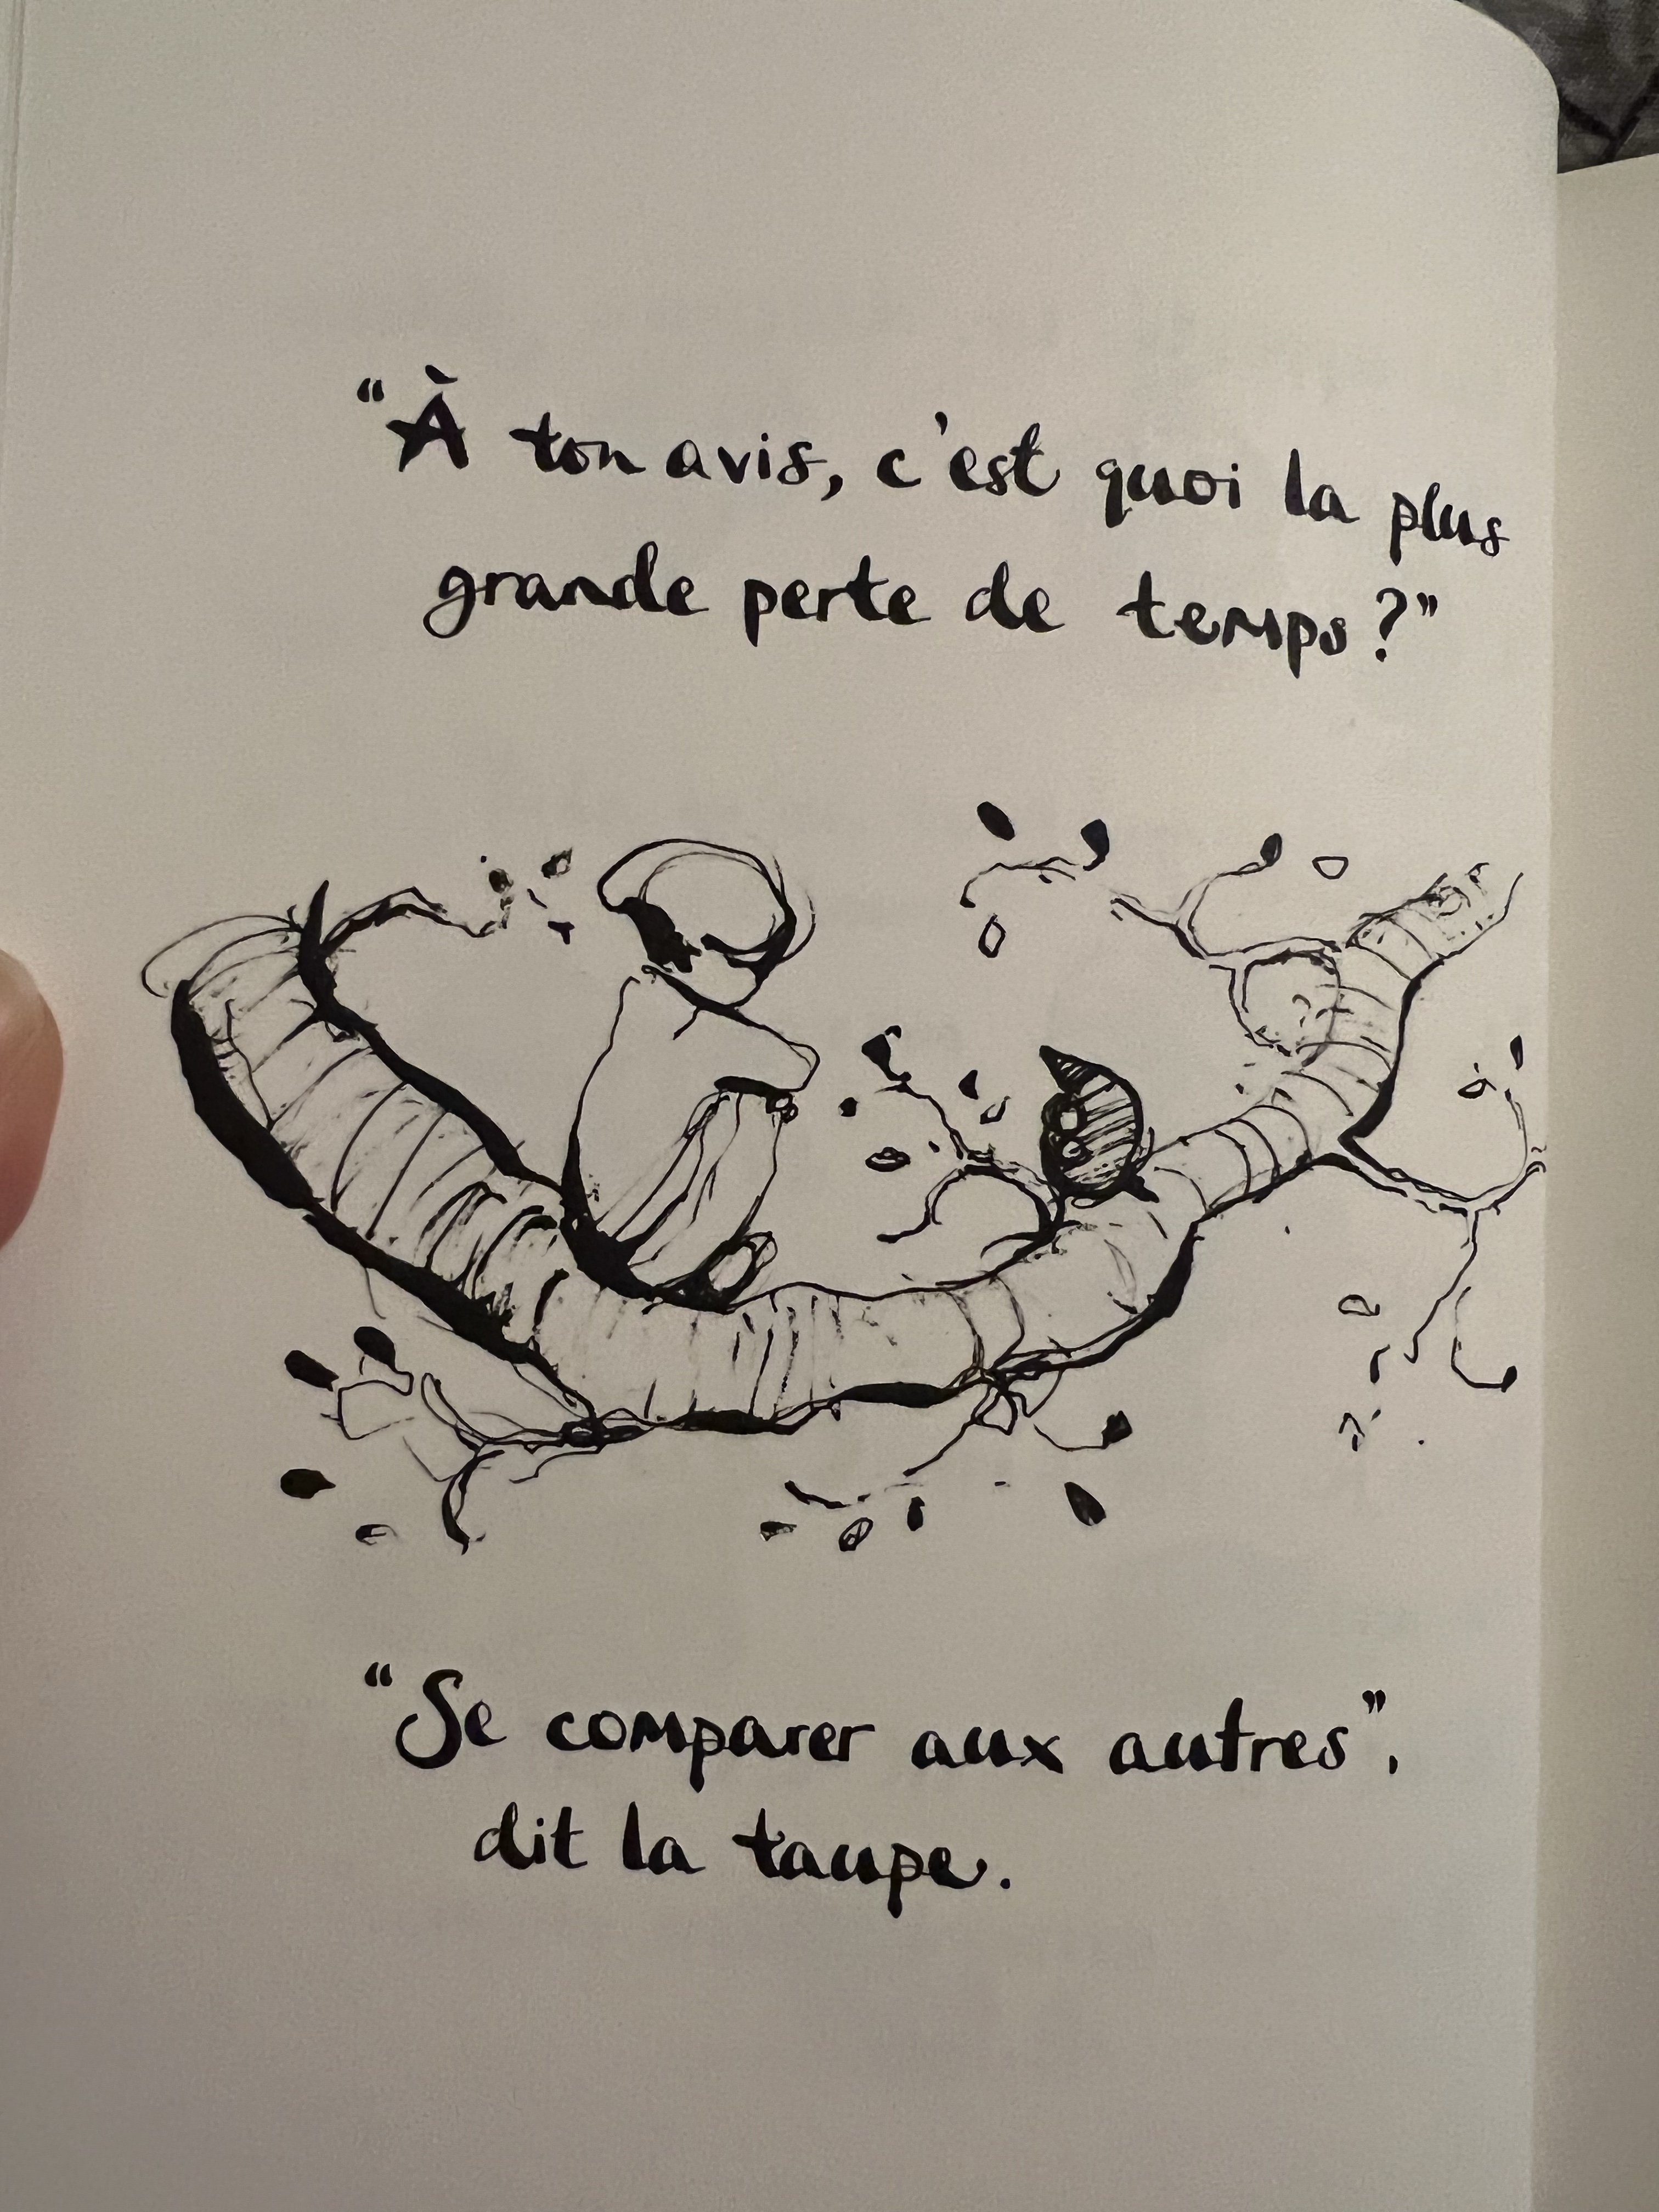 “À ton avis, c'est quoi la plus
grande perte de temps ?”
“Se comparer aux autres”,
dit la taupe.